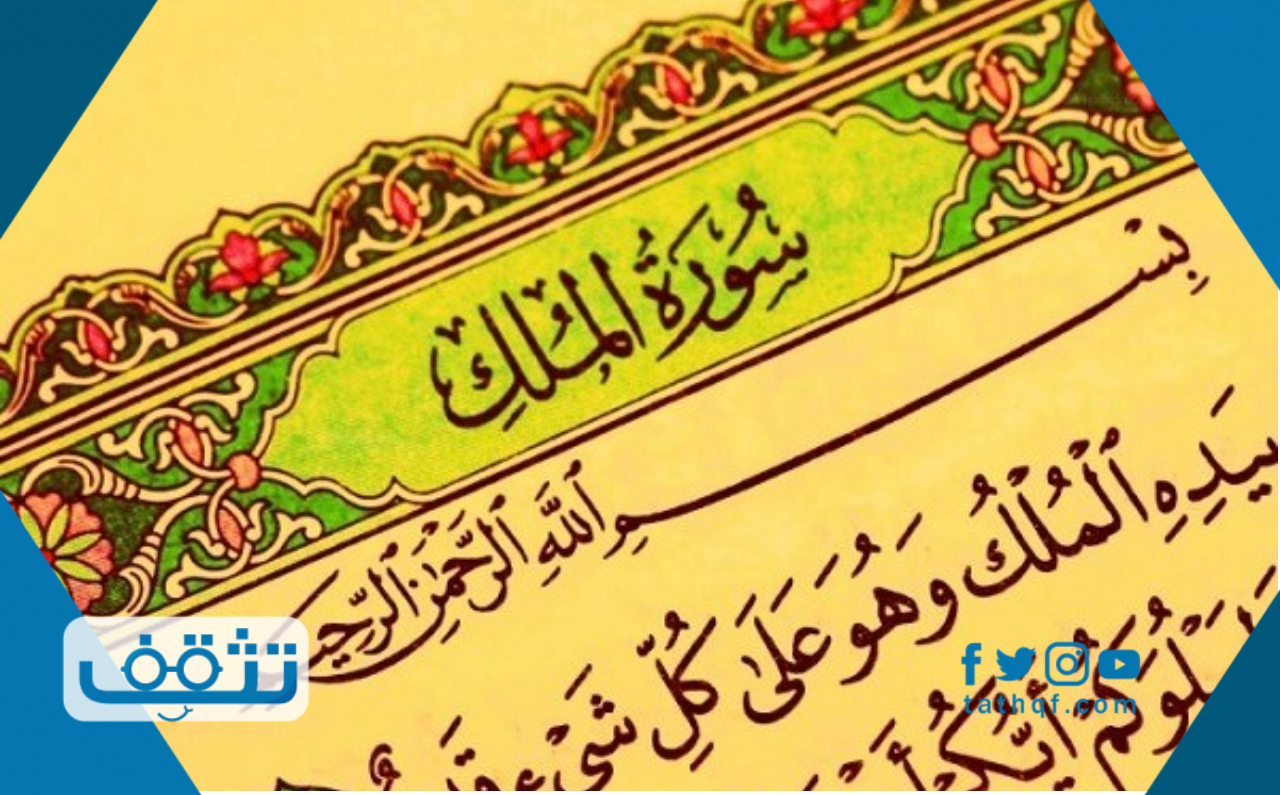 سُورَةُ المُلكِ
بِسْمِ ٱللَّهِ ٱلرَّحْمَٰنِ ٱلرَّحِيمِ
بِيَدِهِ ٱلْمُلْكُ وَهُوَ عَلَىٰ كُلِّ شَىْءٍ
لِيَبْلُوَكُمْ أَيُّكُمْ
تثقف
tathqf.com